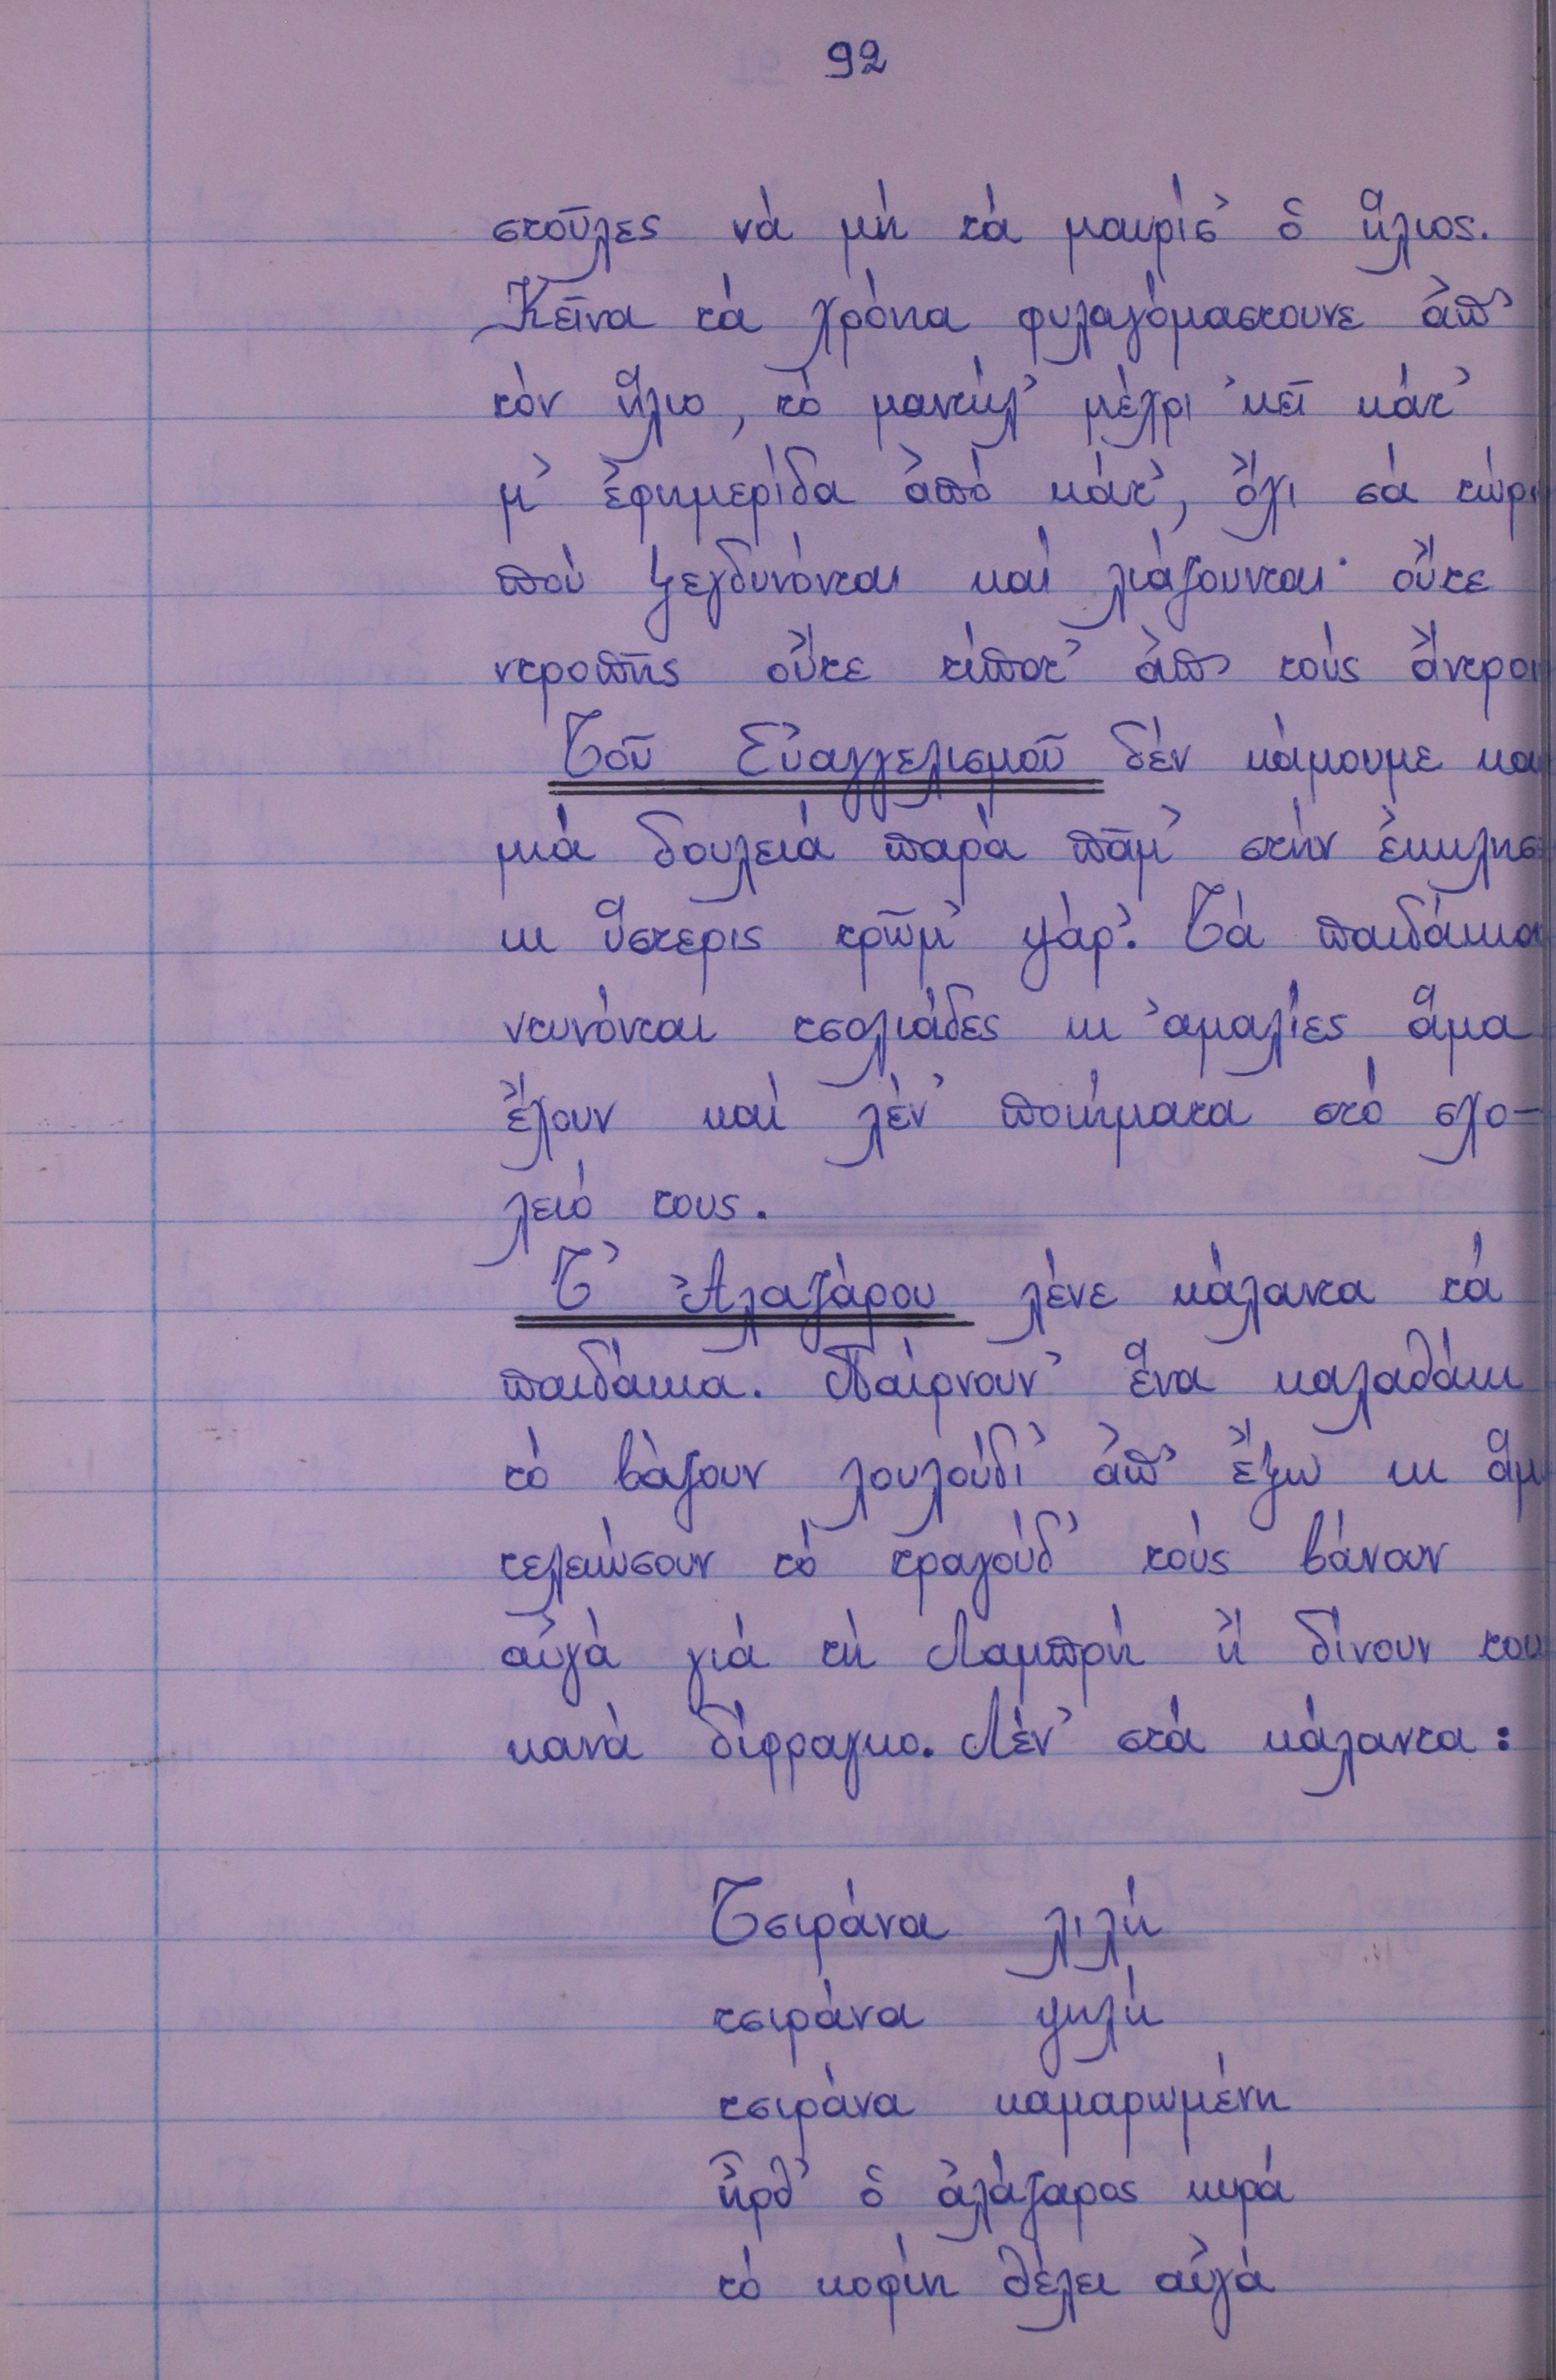 92
στοῦλες νά μή τά μαυρίσ᾿ ὁ ἥλιος.
Κεῖνα τά χρόνια φυλαγόμαστουνε ἀπ᾿
τόν ἥλιο, τό μαντήλ᾿ μέχρι ᾿κεῖ κάτ᾿
μ᾿ ἐφημερίδα ἀπό κάτ᾿, ὄχι σά τώρι
πού ξεγδυνόνται καί λιάζουνται· οὔτε
ντροπῆς οὔτε τίποτ᾿ ἀπ᾿ τούς ἄντροι
Τοῦ Εὐαγγελισμοῦ δέν κάμουμε κα
μιά δουλειά παρά πᾶμ᾿ στήν ἐκκλησ
κι ὕστερις τρῶμ᾿ ψάρ᾿. Τά παιδάκια
ντυνόνται τσολιάδες κι ᾿αμαλίες ἅμα
ἔχουν καί λέν᾿ ποιήματα στό σχο-
λειό τους.
Τ᾿ Ἀλαζάρου λένε κάλαντα τά
παιδάκια. Παίρνουν᾿ ἕνα καλαθάκι
τό βάζουν λουλούδι᾿ ἀπ᾿ ἔξω κι ἅμ
τελειώσουν τό τραγούδ᾿ τούς βάνουν
αὐγά γιά τή Λαμπρή ἤ δίνουν του
κανά δίφραγκο. Λέν᾿ στά κάλαντα:
Τσιράνα λιλή
τσιράνα ψηλή
τσιράνα καμαρωμένη
ἦρθ᾿ ὁ ἀλάζαρος κυρά
τό κοφίνι θέλει αὐγά